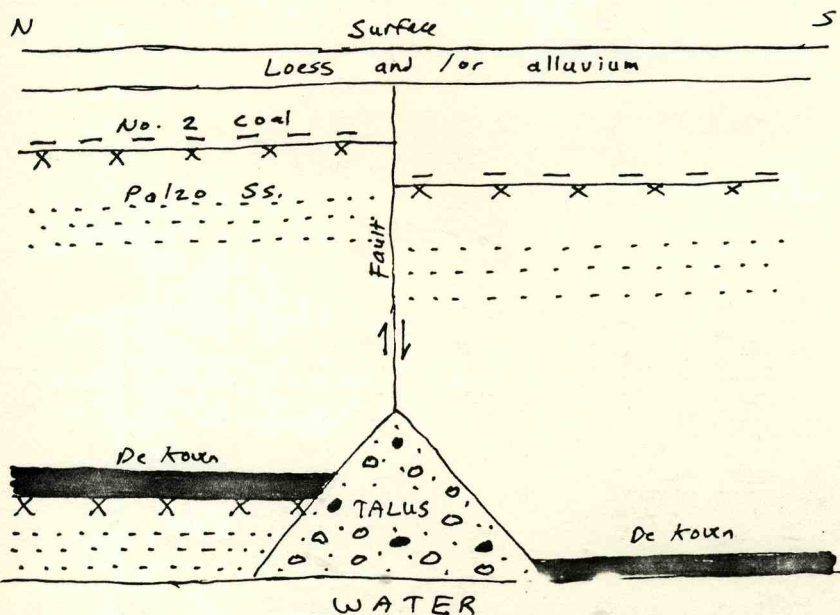 N S
Surface
Loess and / or alluvium
No. 2 coal
Palzo Ss.
Fault
De Koven
TALUS
De Koven
WATER